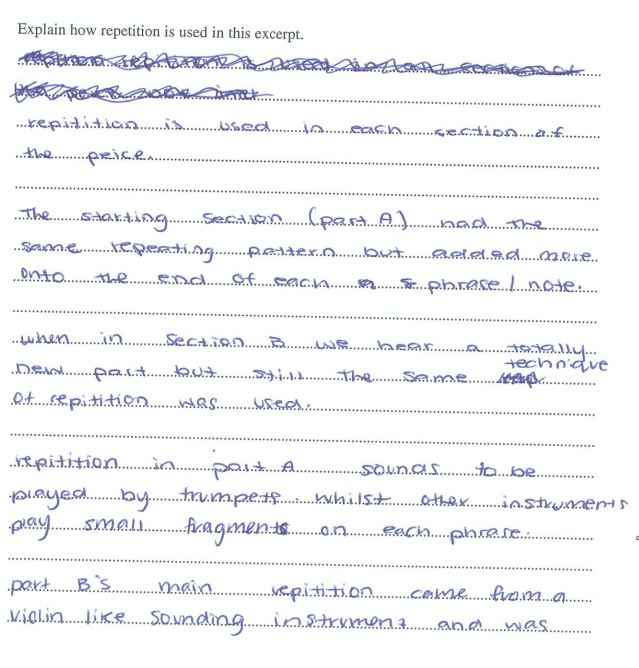 Explain how repetition is used in this excerpt.
repitition is used in each section of
the peice.
The starting section (part A) had the
same repeating pattern but added more
onto the end of each phrase / note.
when in section B we hear a totally
new part but still the same technique
of repitition was used.
repitition in part A sounds to be
played by trumpets. whilst other instruments
play small fragments on each phrase.
part B's main repitition came from a
violin like sounding instrument and was